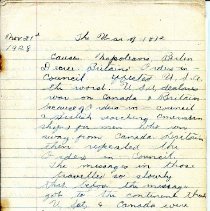 Nov 21st The War of 1812
1928
Causes Napoleons Berlin
Decree. Britains Orders in
Council affected U.S.A.
the worst. U.S. declares
war on Canada & Britain
because of orders in council
& British searching American
ships for men who ran
away from Canada & Britain
then repealed the
Orders in Council.
The messages in those
travelled so slowly
that before the message
got to the continent that
U.S. & Canada were